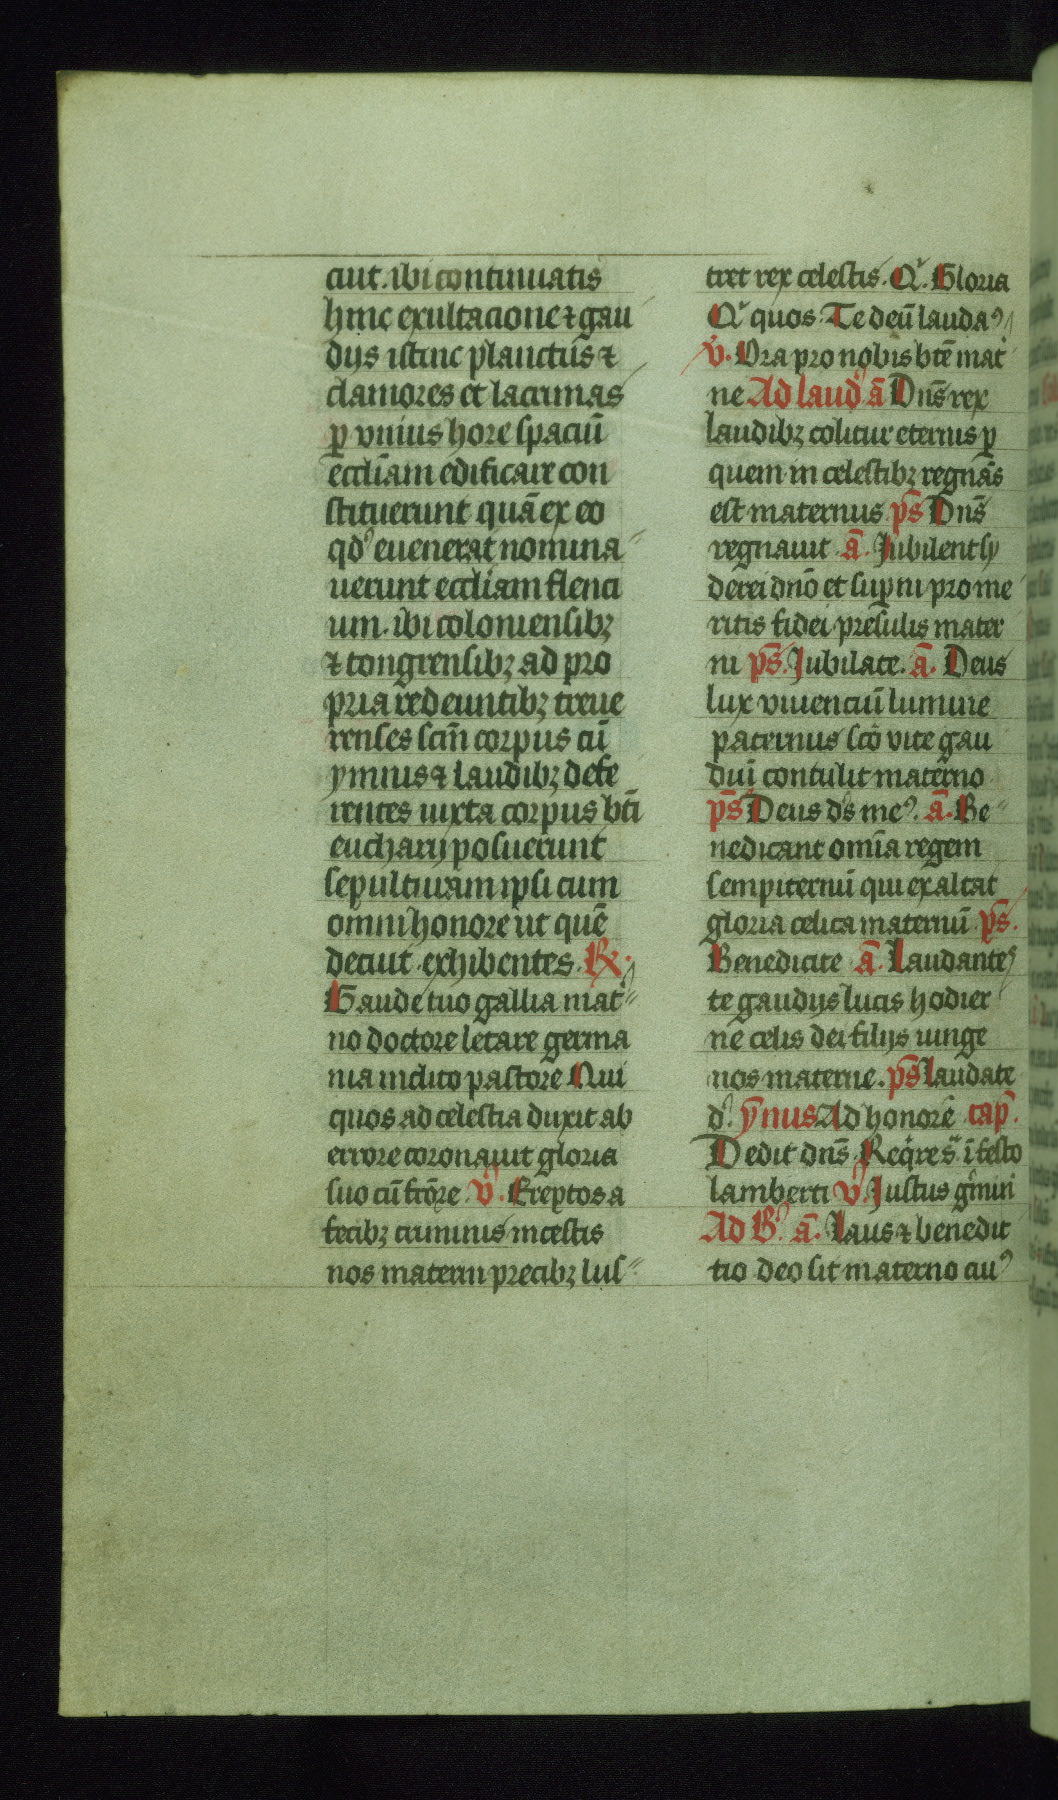 ciut. ibi continuatis
hinc exultacione ⁊ gau
dijs istinc planctus ⁊
clamores et lacrimas
ꝑ vnius hore spaciū
eccliam edificare con
stituerunt quā ex eo
qdꝰ euenerat nomina
uerunt eccliam flenci
um. ibi coloniensibꝫ
⁊ tongrensibꝫ ad pro
pria redeuntibꝫ treue
renses scm̄ corpus cū
ymnis ⁊ laudibꝫ defe
rentes iuxta corpus bt̄i
eucharij posuerunt
sepulturam ipsi cum
omni honore ut quē
deciut exhibentes. Rx.
Gaude tuo gallia mat
no doctore letare germa
nia inclito pastore Qui
quos ad celestia duxit ab
errore coronauit gloria
suo cū frōre. v̊. Ereptos a
fecibꝫ criminis incestis
nos materni precibꝫ lus
tret rex celestis. Qͥ. Gloria
Qͥ quos. Te deū laudaꝰ
v̊. Ora pro nobis btē mat
ne Ad laud ā Dn̄s rex
laudibꝫ colitur eternus ꝑ
quem in celestibꝫ regnās
est maternus p̄s Dn̄s
regnauit ā. Jubilent sy
derei dn̄o et suꝑni pro me
ritis fidei presulis mater
ni p̄s. Jubilate. ā. Deus
lux viuenciū lumine
paternus sc̄o vite gau
diū contulit materno
p̄s Deus ds̄ meꝰ. ā. Be
nedicant omīa regem
sempiternū qui exaltat
gloria celica maternū p̄s.
Benedicite ā. Laudantes
te gaudijs lucis hodier
nē celis dei filijs iunge
nos materne. p̄s Laudate
dꝰ. ȳnus Ad honorē cap̄.
Dedit dn̄s Reqͥres ī festo
lamberti v̊. Justus gͥmini
Ad Bꝰ. ā. Laus ⁊ benedic
tio deo sit materno ciuꝰ